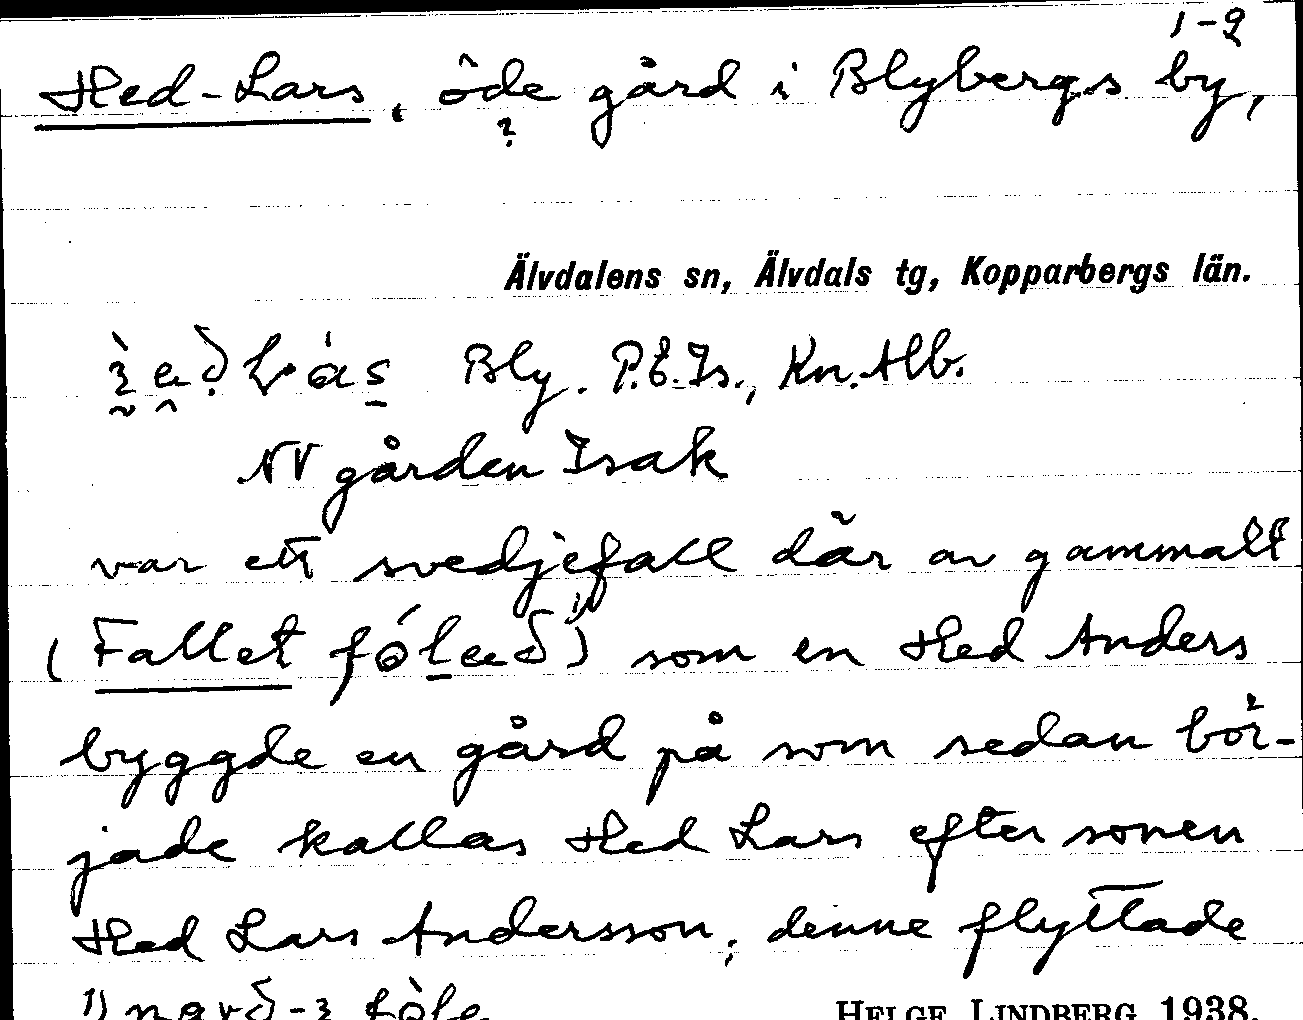 1-9
Hed-Lars, öde gård i Blybergs by,
?
Älvdalens sn, Älvdals tg, Kopparbergs län.
Bly. P.E.Is., Kn.Alb.
NV gården Isak
var ett svedjefall där av gammalt
(Fallet 1)) som en Hed Anders
byggde en gård på som sedan bör-
jade kallas Hed Lars efter sonen
Hed Lars Andersson, denne flyttade
1)
HELGE LINDBERG 1938.